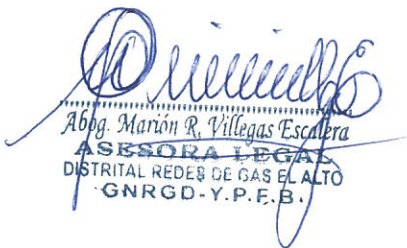 Abog. Marión R. Villegas Escalera
ASESORA LEGAL
DISTRITAL REDES DE GAS EL ALTO
GNRGD-Y.P.F.B.